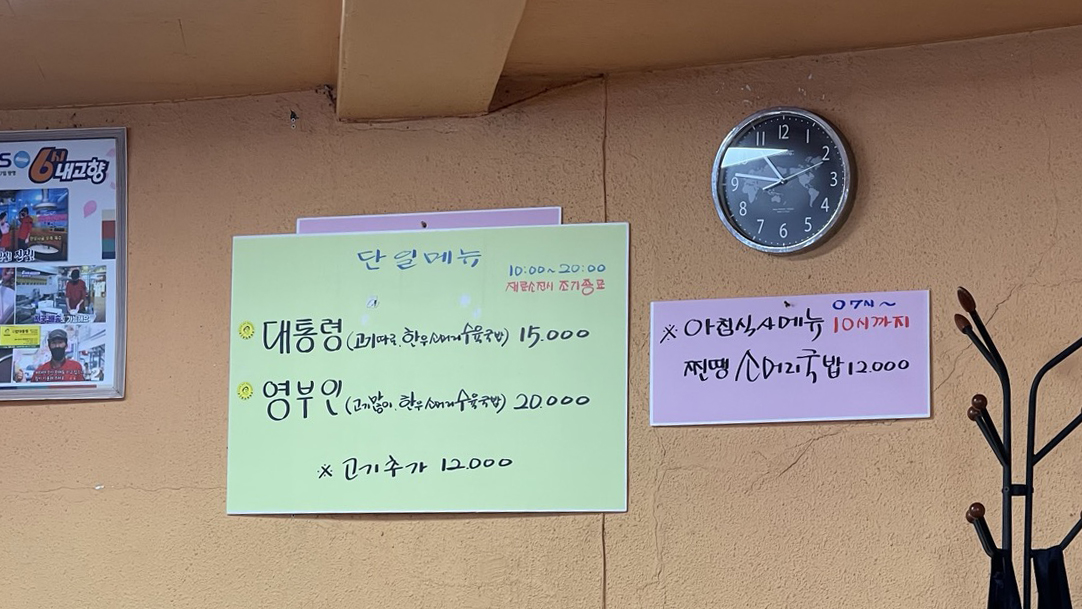 6시
내고향
단일메뉴
10:00~20:00
재료소진시 조기종료
대통령(고기따로, 한우소머리수육국밥) 15.000
영부인(고기많이, 한우소머리수육국밥) 20.000
※ 고기추가 12.000
07시~
※ 아침식사메뉴 10시까지
찐땡 소머리국밥 12.000
12
1
2
3
4
5
6
7
8
9
11